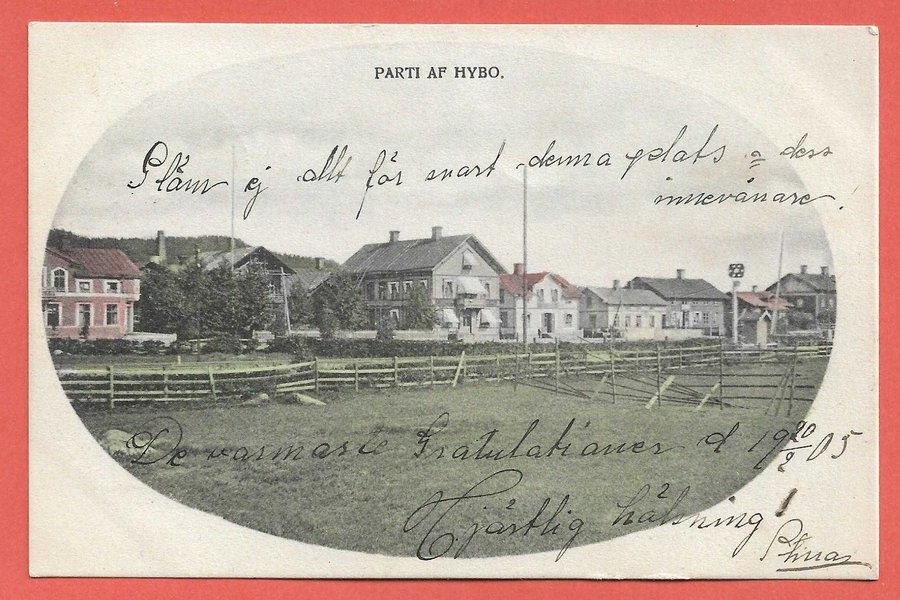 PARTI AF HYBO.
Gläm ej allt för snart denna plats o dess
innevånare.
De varmaste Gratulationer d 19 20/2 05
Hjärtlig hälsning!